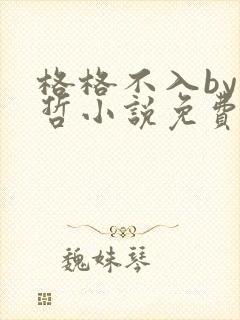 格格不入by
哲小說免費
魏妹琴